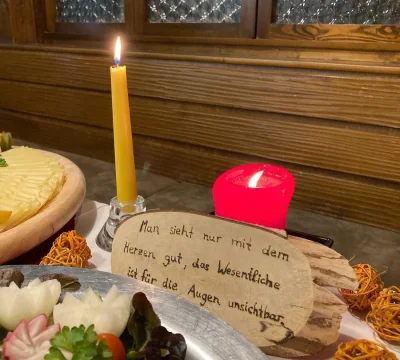 Man sieht nur mit dem
Herzen gut, das Wesentliche
ist für die Augen unsichtbar